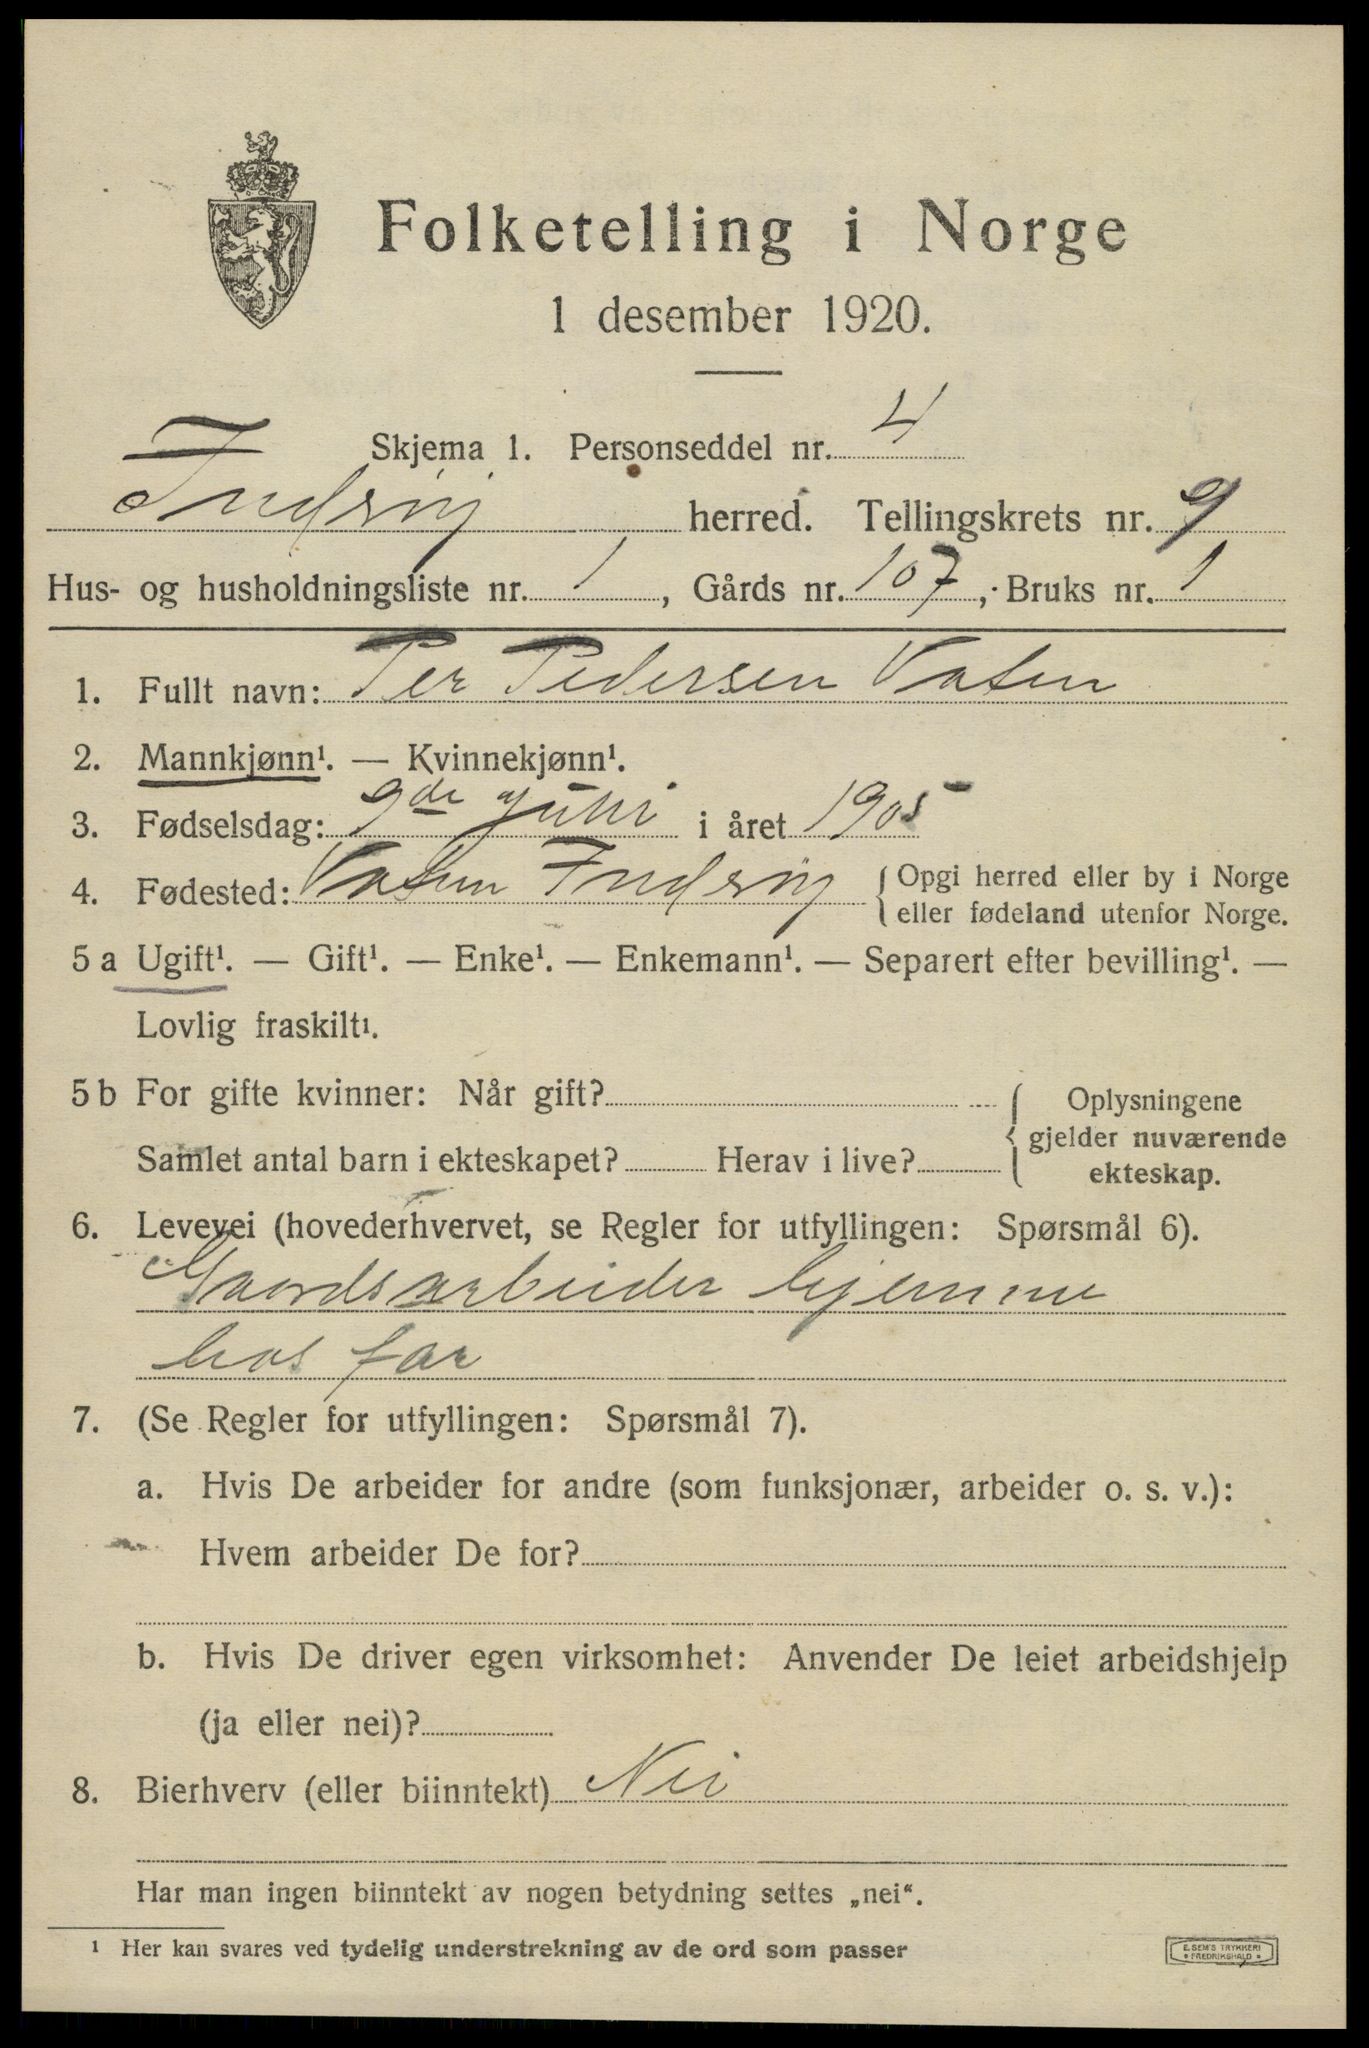 Folketelling i Norge
1 desember 1920.
Skjema 1. Personseddel nr. 4
Inderøy herred. Tellingskrets nr. 9
Hus- og husholdningsliste nr. 1, Gårds nr. 107, Bruks nr. 1
1. Fullt navn: Per Pedersen Vaten
2. Mannkjønn¹. — Kvinnekjønn¹.
3. Fødselsdag: 9de juli i året 1905
4. Fødested: Vaten Inderøy { Opgi herred eller by i Norge
eller fødeland utenfor Norge.
5 a Ugift¹. — Gift¹. — Enke¹. — Enkemann¹. — Separert efter bevilling¹. —
Lovlig fraskilt¹.
5 b For gifte kvinner: Når gift? { Oplysningene
gjelder nuværende
Samlet antal barn i ekteskapet? Herav i live? ekteskap.
6. Levevei (hovederhvervet, se Regler for utfyllingen: Spørsmål 6).
Gaardsarbeider hjemme
hos far
7. (Se Regler for utfyllingen: Spørsmål 7).
a. Hvis De arbeider for andre (som funksjonær, arbeider o. s. v.):
Hvem arbeider De for?
b. Hvis De driver egen virksomhet: Anvender De leiet arbeidshjelp
(ja eller nei)?
8. Bierhverv (eller biinntekt) Nei
Har man ingen biinntekt av nogen betydning settes „nei“.
¹ Her kan svares ved tydelig understrekning av de ord som passer
E. SEM'S TRYKKERI
• FREDRIKSHALD •